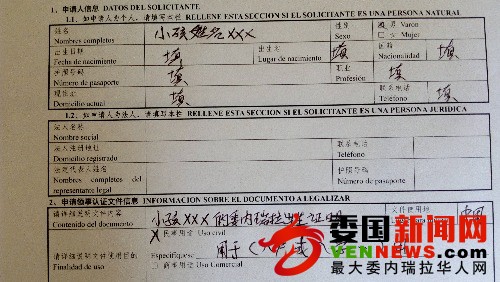 1、申请人信息 DATOS DEL SOLICITANTE
1.1、如申请人为个人，请填写本栏 RELLENE ESTA SECCION SI EL SOLICITANTE ES UNA PERSONA NATURAL
姓名 小孩姓名XXX 性别 男 Varón
Nombres completos Sexo 女 Mujer
出生日期 填 出生地 填 国籍 填
Fecha de nacimiento Lugar de nacimiento Nacionalidad
护照号码 填 职业 填
Número de pasaporte Profesión
现住址 填 联系电话 填
Domicilio actual Teléfono
1.2、如申请人为法人，请填写本栏 RELLENE ESTA SECCION SI EL SOLICITANTE ES UNA PERSONA JURIDICA
法人名称
Nombre social
法人注册地址 联系电话
Domicilio registrado Teléfono
法定代表人姓名 护照号码
Nombres completos del representante legal Número de pasaporte
2、申请领事认证文件信息 INFORMACION SOBRE EL DOCUMENTO A LEGALIZAR
请详细说明文件内容 小孩XXX的委内瑞拉出生证明 文件使用地 中国
Contenido del documento
X 民事用途 Uso civil
请详细说明文件使用目的 Especifíquese 用于
Finalidad de uso 商事用途 Uso Comercial
委国新闻网
VENNEWS.COM
最大委内瑞拉华人网